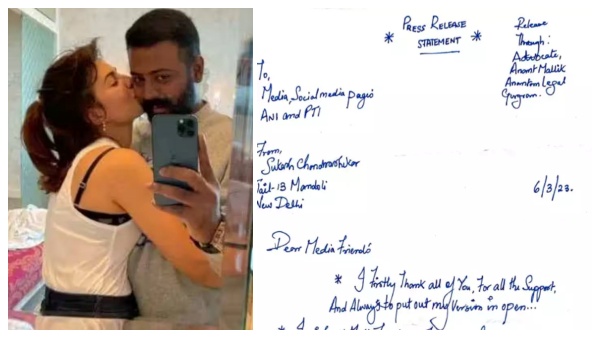 * PRESS RELEASE *
STATEMENT
Release
Through:
Advocate,
Anant Mallik
Anantam Legal
Gurgram.
To,
Media, Social media pages
ANI and PTI
From,
Sukash Chandrashekar
Jail-13 Mandoli
New Delhi
6/3/23.
Dear Media Friends
* I Firstly Thank all of You, For all the Support,
And Always to put out my Version in open...